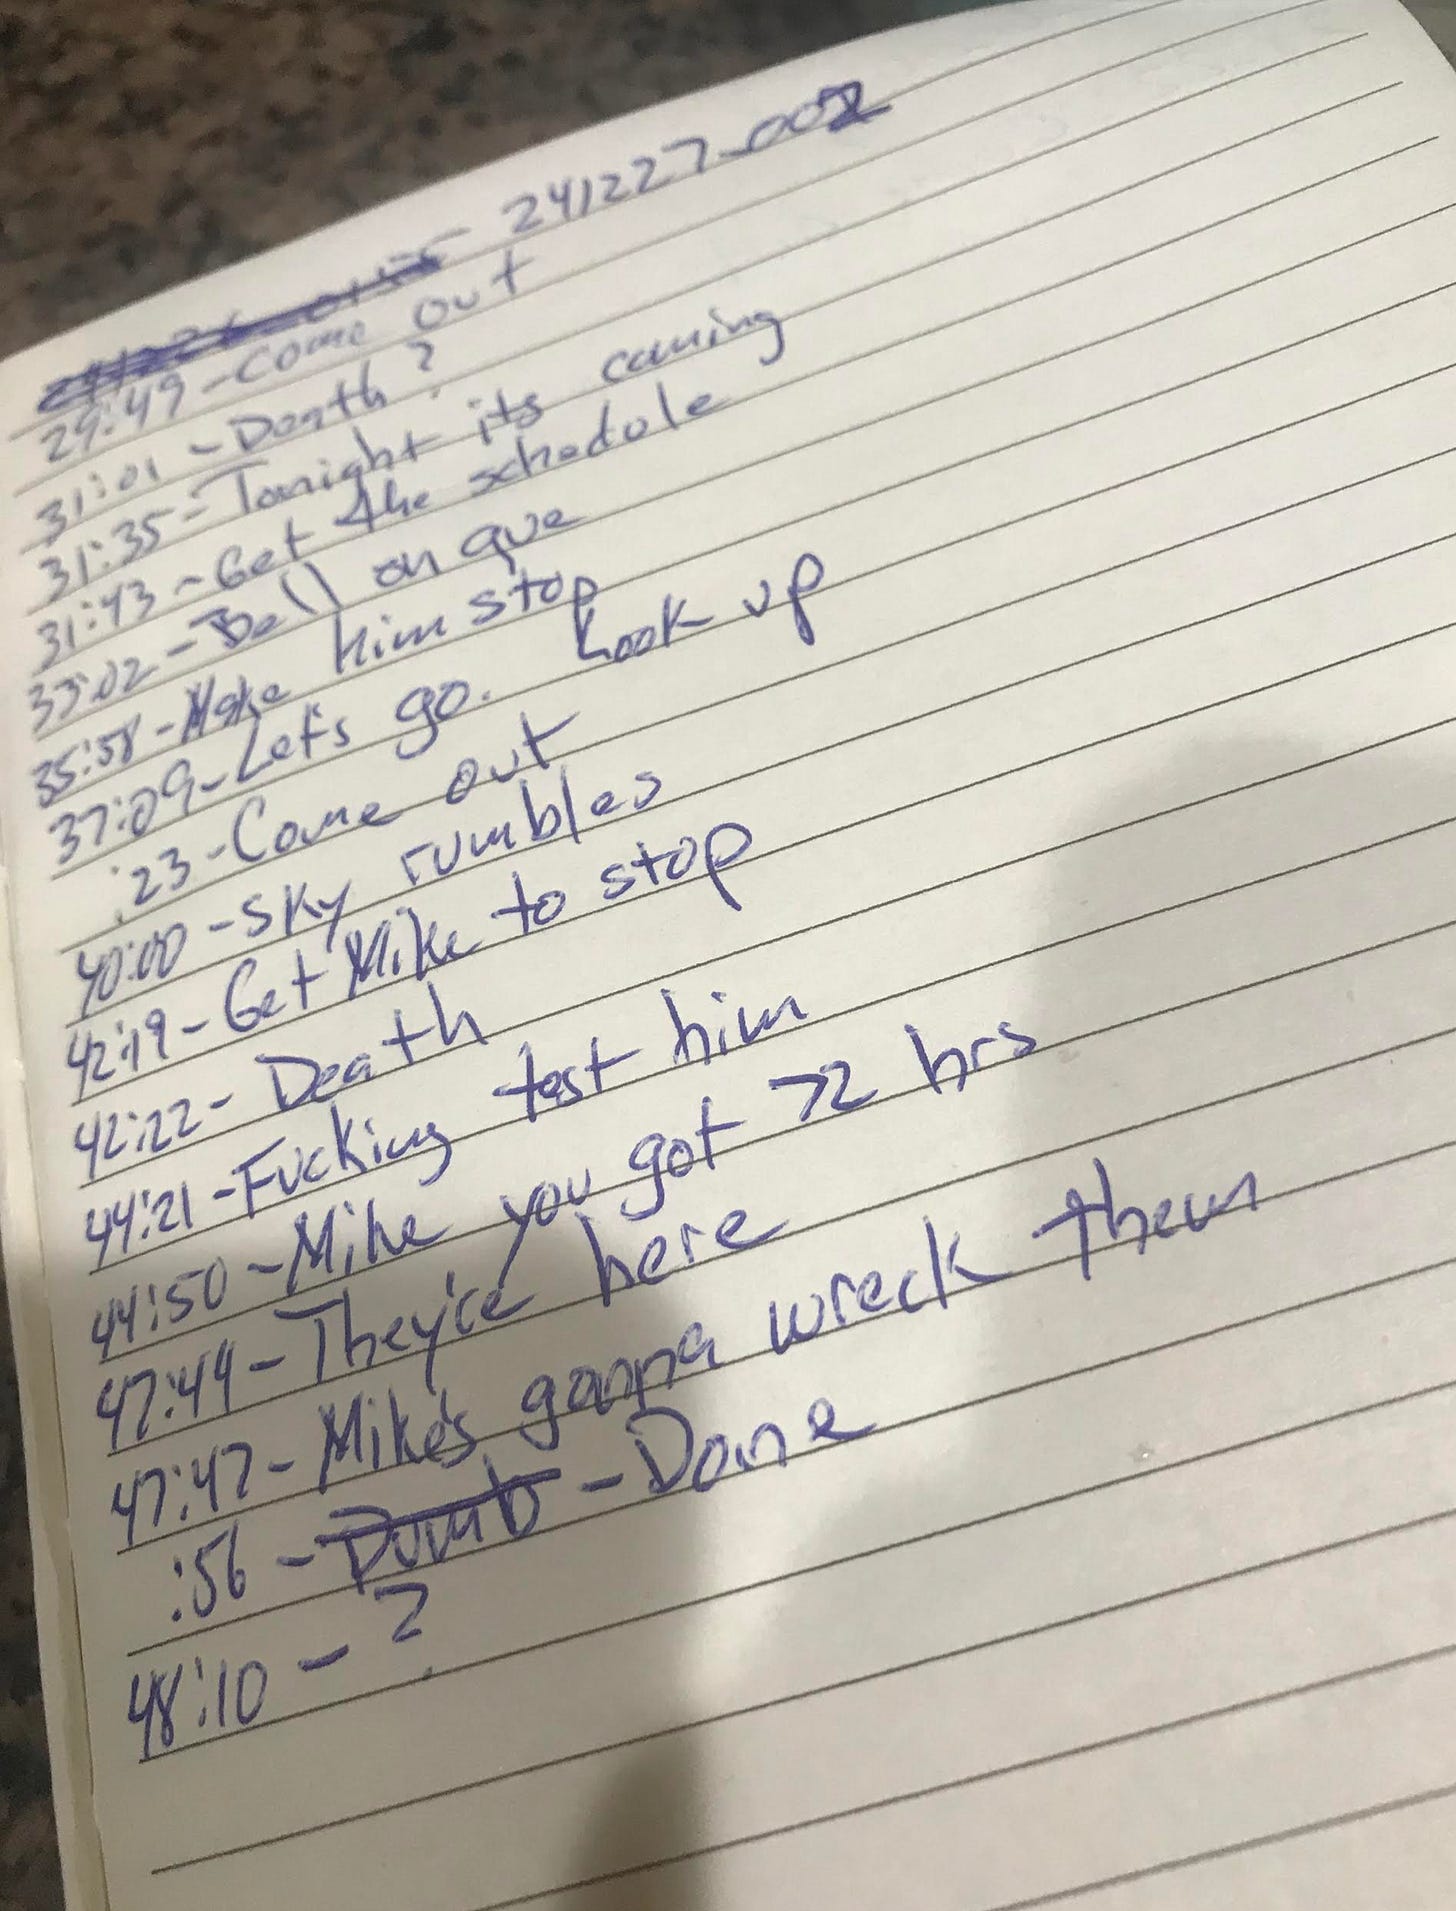 241227-002
29:49 - Come out
31:01 - Death?
31:35 - Tonight its coming
31:43 - Get the schedole
33:02 - Bell on que
35:58 - Make him stop
37:09 - Let's go. Look up
:23 - Come out
40:00 - Sky rumbles
42:19 - Get Mike to stop
42:22 - Death
44:21 - Fucking test him
44:50 - Mike you got 72 hrs
47:44 - They're here
47:47 - Mike's gonna wreck them
:56 - Dumb - Done
48:10 - ?